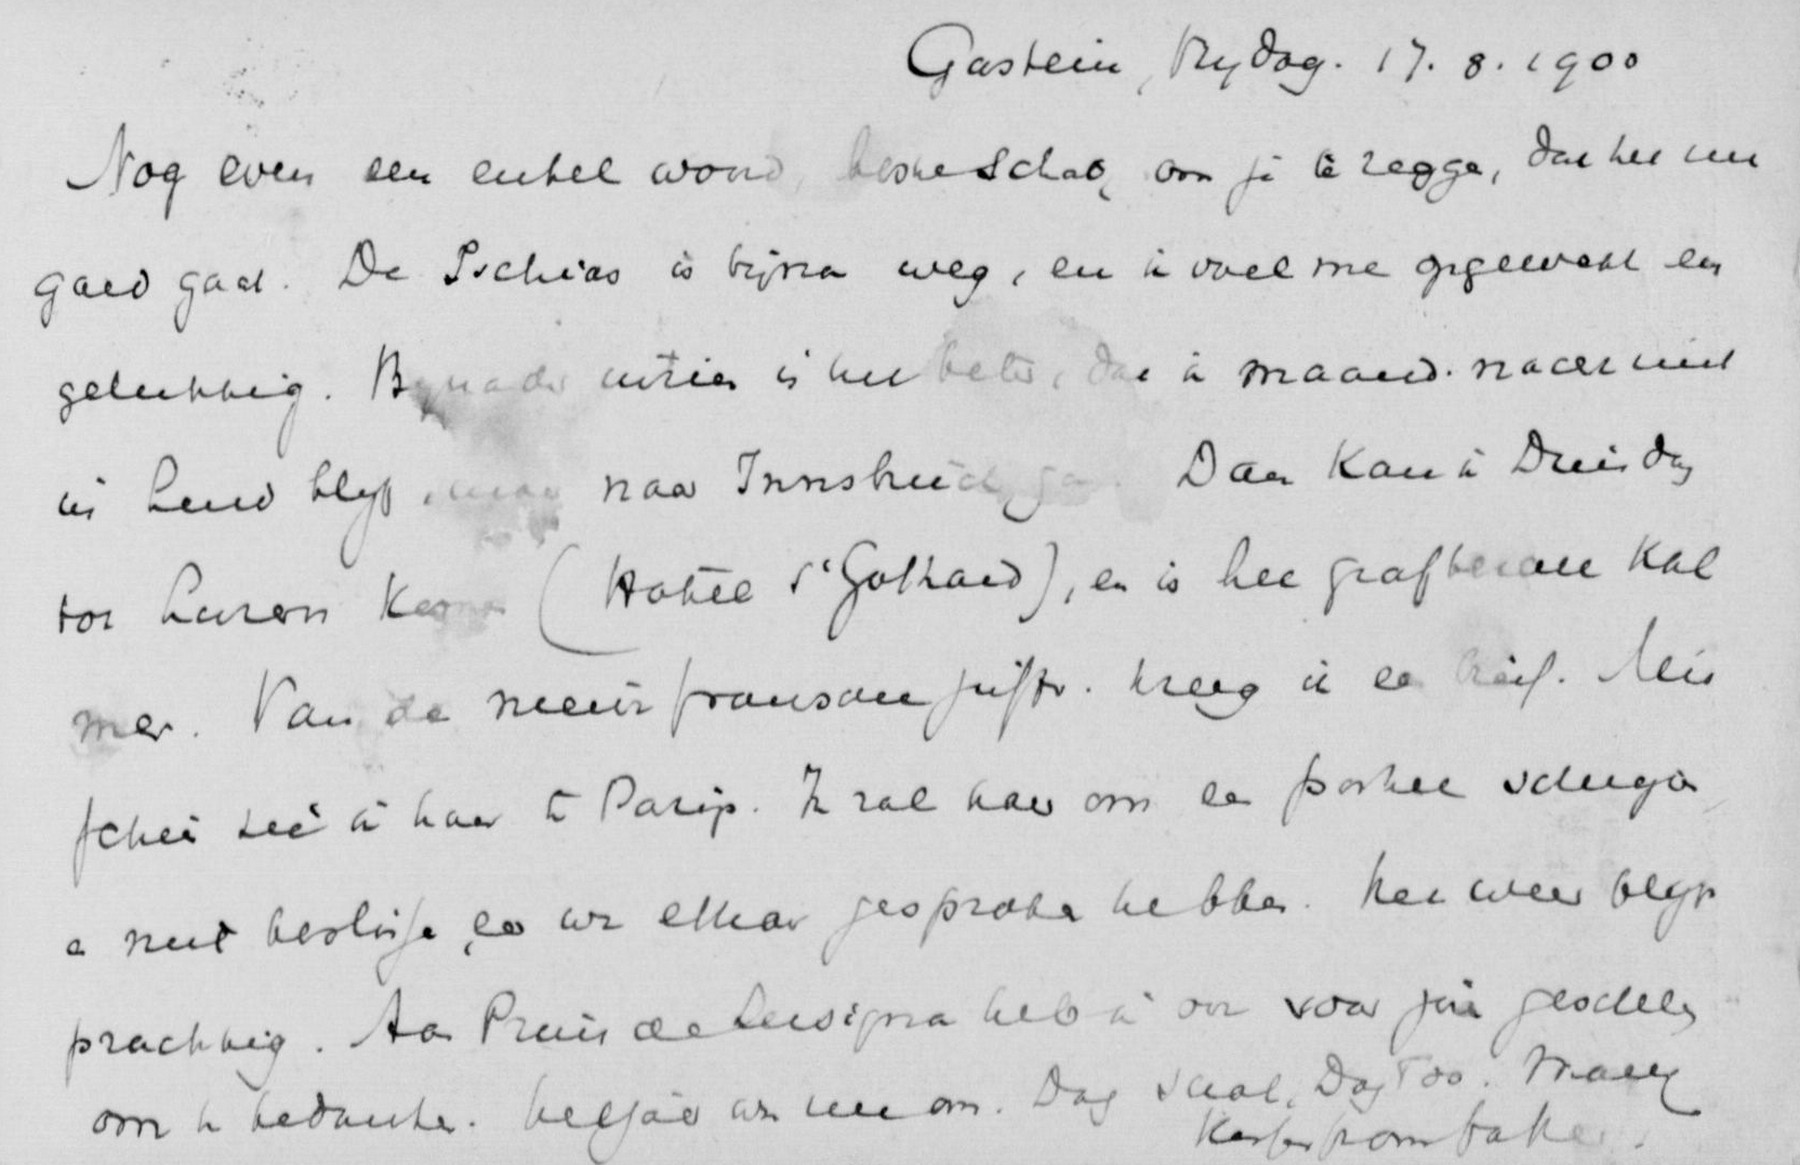 Gastein, Vrydag. 17. 8. 1900
Nog even een enkel woord, beste Schat, om je te zegge, dat het me
goed gaat. De Ischias is bijna weg, en ik voel me opgewekt en
gelukkig. By nader inzien is het beter, dat ik maand. nacht niet
in Lend blyf, maar naar Innsbruck ga. Dan kan ik Dinsdag
tot Luzern kome (Hotel St Gothard), en is het
mer. Van de nieuwe fransche juffr. kreeg ik een brief. Mis
schie zie ik haar te Parijs. Ik zal haar om een portret
e niet beslisse, eer we elkaar gesproke hebbe. Het weer blyft
prachtig. Aan Prins de Lusigna heb ik ook voor jou geschreve
om te bedanke. Dag schat, Dag Too.